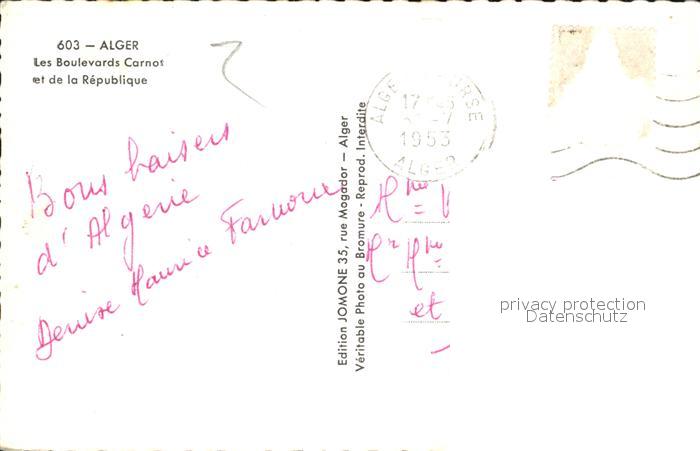 603 — ALGER
Les Boulevards Carnot
et de la République
Bons baisers
d'Algerie
Denise Maurice
Edition JOMONE 35, rue Mogador — Alger
Véritable Photo au Bromure - Reprod. Interdite
ALGER BOURSE
17
1953
ALGER
Mme
Mr Mme
et
privacy protection
Datenschutz